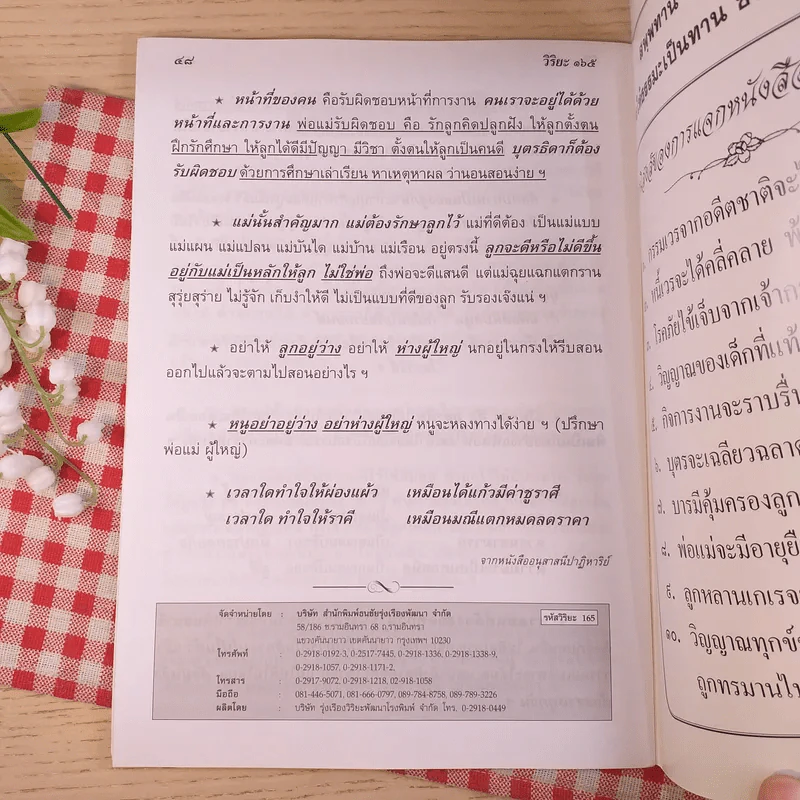 ๔๘ วิริยะ ๑๖๕
★ หน้าที่ของคน คือรับผิดชอบหน้าที่การงาน คนเราจะอยู่ได้ด้วย
หน้าที่และการงาน พ่อแม่รับผิดชอบ คือ รักลูกคิดปลูกฝัง ให้ลูกตั้งตน
ฝึกรักศึกษา ให้ลูกได้ดีมีปัญญา มีวิชา ตั้งตนให้ลูกเป็นคนดี บุตรธิดาก็ต้อง
รับผิดชอบ ด้วยการศึกษาเล่าเรียน หาเหตุหาผล ว่านอนสอนง่าย ฯ
★ แม่นั้นสำคัญมาก แม่ต้องรักษาลูกไว้ แม่ที่ดีต้อง เป็นแม่แบบ
แม่แผน แม่แปลน แม่บันได แม่บ้าน แม่เรือน อยู่ตรงนี้ ลูกจะดีหรือไม่ดีขึ้น
อยู่กับแม่เป็นหลักให้ลูก ไม่ใช่พ่อ ถึงพ่อจะดีแสนดี แต่แม่ฉุยแฉกแตกราน
สุรุ่ยสุร่าย ไม่รู้จัก เก็บงำให้ดี ไม่เป็นแบบที่ดีของลูก รับรองเจ๊งแน่ ฯ
★ อย่าให้ ลูกอยู่ว่าง อย่าให้ ห่างผู้ใหญ่ นกอยู่ในกรงให้รีบสอน
ออกไปแล้วจะตามไปสอนอย่างไร ฯ
★ หนูอย่าอยู่ว่าง อย่าห่างผู้ใหญ่ หนูจะหลงทางได้ง่าย ฯ (ปรึกษา
พ่อแม่ ผู้ใหญ่)
★ เวลาใดทำใจให้ผ่องแผ้ว เหมือนได้แก้วมีค่าชูราศี
เวลาใด ทำใจให้ราคี เหมือนมณีแตกหมดลดราคา
จากหนังสืออนุสาสนีปาฏิหาริย์
จัดจำหน่ายโดย : บริษัท สำนักพิมพ์ธนชัยรุ่งเรืองพัฒนา จำกัด รหัสวิริยะ 165
58/186 ซ.รามอินทรา 68 ถ.รามอินทรา
แขวงคันนายาว เขตคันนายาว กรุงเทพฯ 10230
โทรศัพท์ : 0-2918-0192-3, 0-2517-7445, 0-2918-1336, 0-2918-1338-9,
0-2918-1057, 0-2918-1171-2,
โทรสาร : 0-2917-9072, 0-2918-1218, 02-918-1058
มือถือ : 081-446-5071, 081-666-0797, 089-784-8758, 089-789-3226
ผลิตโดย : บริษัท รุ่งเรืองวิริยะพัฒนาโรงพิมพ์ จำกัด โทร. 0-2918-0449
สพฺพทานํ
ธรรมะเป็นทาน
ของการแจกหนังสือ
กรรมเวรจากอดีตชาติจะ
หนี้เวรจะได้คลี่คลาย
โรคภัยไข้เจ็บจากเจ้า
๔. วิญญาณของเด็กที่แท้
๕. กิจการงานจะราบรื่น
๖. บุตรจะเฉลียวฉลาด
๗. บารมีคุ้มครองลูก
๘. พ่อแม่จะมีอายุยื
๙. ลูกหลานเกเรจ
๑๐. วิญญาณทุกข์
ถูกทรมานใน